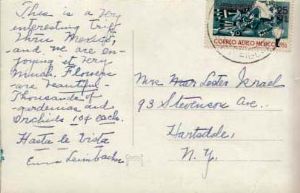 This is a very
interesting trip
thru Mexico
and we are en-
joying it very
much. Flowers
are beautiful -
Thousands of
gardenias and
orchids 10¢ each.
Hasta la Vista
CORREO AEREO MEXICO
Mrs Lester Israel
93 Stevenson Ave.
Hartsdale,
N.Y.